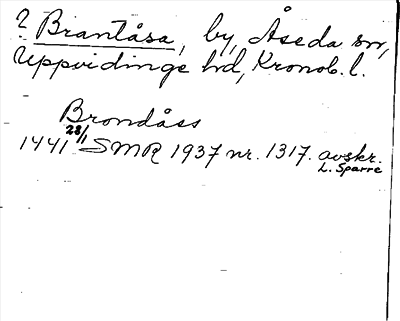 ? Brantåsa, by, Åseda sn,
Uppvidinge hd, Kronob. l.
Brondåss
1441 28/1 SMR 1937 nr. 1317. avskr.
L. Sparre